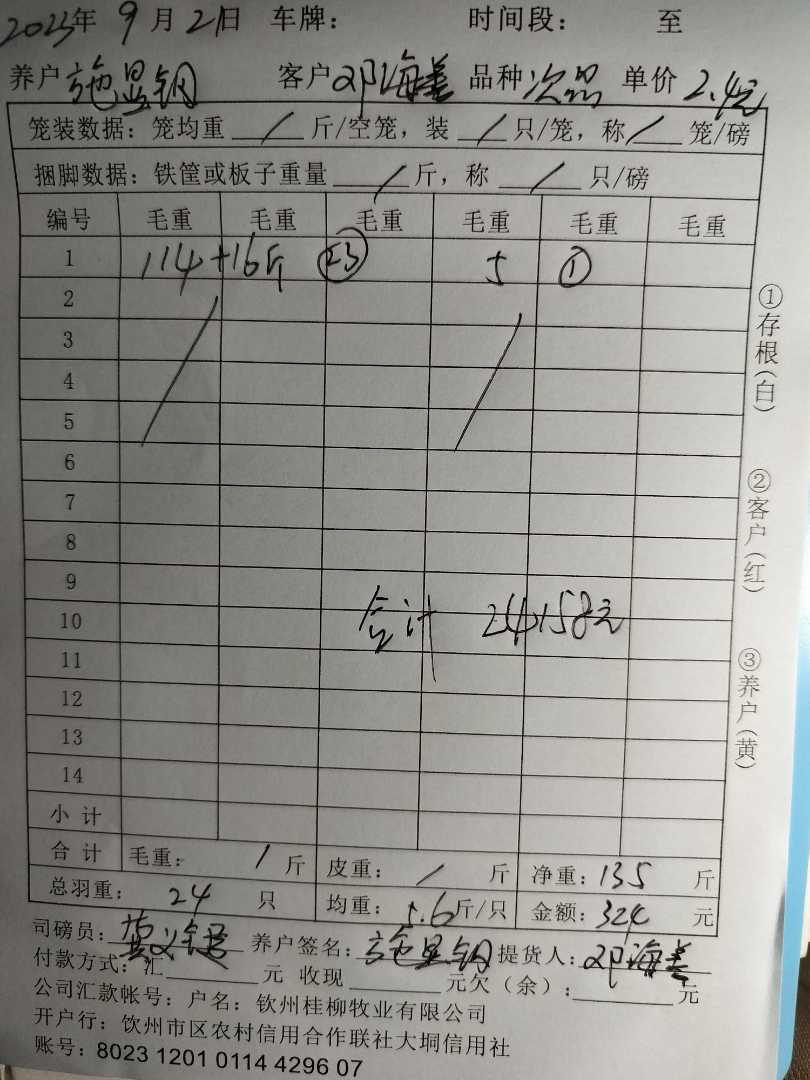 2023年 9 月 21日 车牌： 时间段： 至
养户 施显钢 客户 邓海善 品种 次品 单价 2.4元
笼装数据：笼均重 / 斤/空笼，装 / 只/笼，称 / 笼/磅
捆脚数据：铁筐或板子重量 / 斤，称 / 只/磅
编号 毛重 毛重 毛重 毛重 毛重 毛重
1 114+16斤 ㉓ 5 ①
2
3
4
5
6
7
8
9
10 合计 24158元
11
12
13
14
小计
合计 毛重： / 斤 皮重： / 斤 净重：135 斤
总羽重： 24 只 均重： 5.6斤/只 金额：324 元
司磅员： 养户签名：施显钢 提货人：邓海善
付款方式：汇 元 收现 元欠（余）： 元
公司汇款帐号：户名：钦州桂柳牧业有限公司
开户行：钦州市区农村信用合作联社大垌信用社
账号：8023 1201 0114 4296 07
①存根（白）
②客户（红）
③养户（黄）